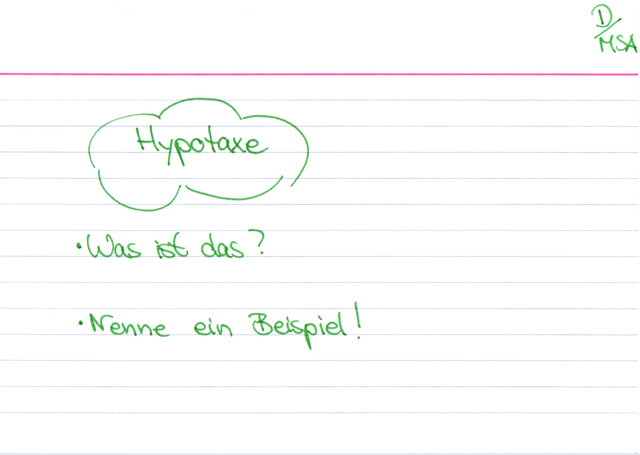 D/
MSA
Hypotaxe
• Was ist das?
• Nenne ein Beispiel!